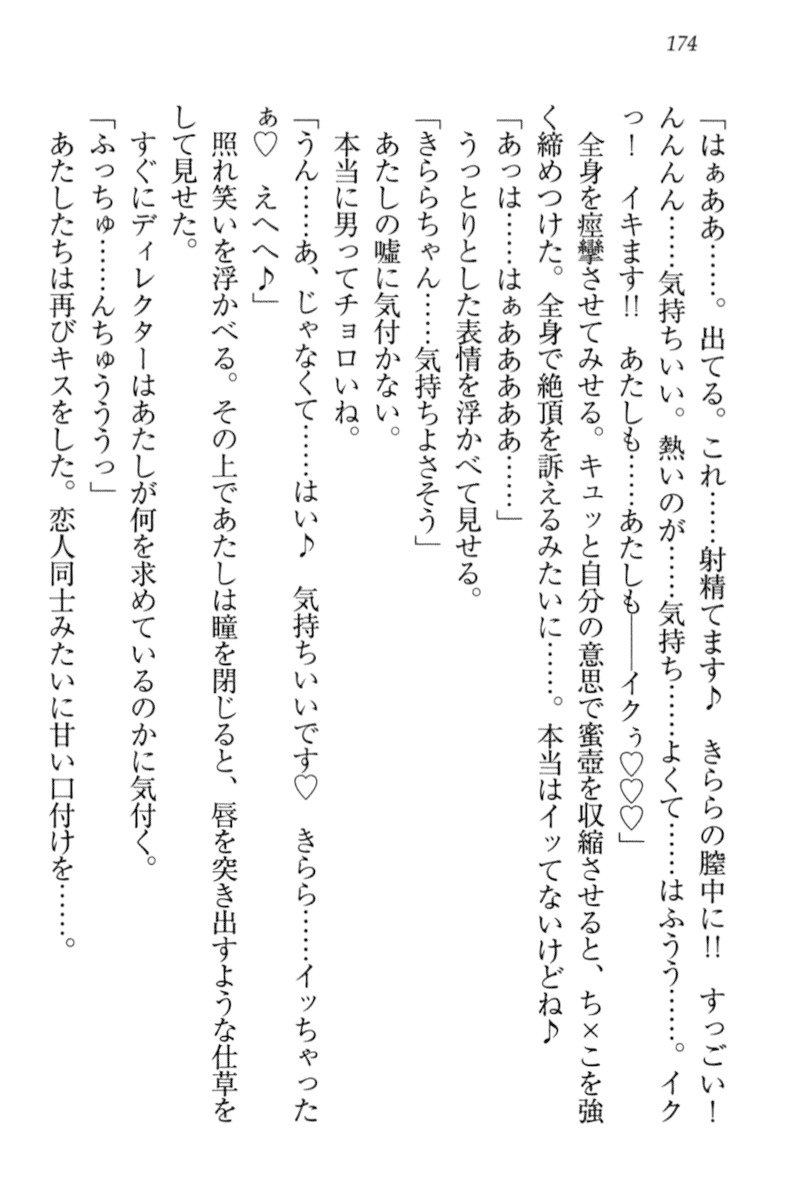 174
「はぁああ……。出てる。これ……射精てます♪　きららの膣中に!!　すっごい！
んんんん……気持ちいい。熱いのが……気持ち……よくて……はふうう……。イク
っ！　イキます!!　あたしも……あたしも――イクぅ♡♡♡」
　全身を痙攣させてみせる。キュッと自分の意思で蜜壺を収縮させると、ち×こを強
く締めつけた。全身で絶頂を訴えるみたいに……。本当はイッてないけどね♪
「あっは……はぁああああ……」
　うっとりとした表情を浮かべて見せる。
「きららちゃん……気持ちよさそう」
　あたしの嘘に気付かない。
　本当に男ってチョロいね。
「うん……あ、じゃなくて……はい♪　気持ちいいです♡　きらら……イッちゃった
ぁ♡　えへへ♪」
　照れ笑いを浮かべる。その上であたしは瞳を閉じると、唇を突き出すような仕草を
して見せた。
　すぐにディレクターはあたしが何を求めているのかに気付く。
「ふっちゅ……んちゅうううっ」
　あたしたちは再びキスをした。恋人同士みたいに甘い口付けを……。